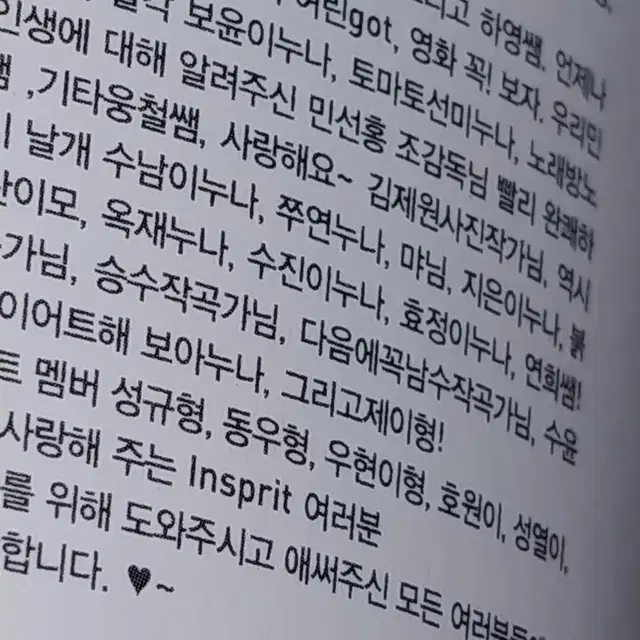 그리고 하영쌤. 언제나
보윤이누나, 토마토선미누나, 노래방노
여린got, 영화 꼭! 보자. 우리민
인생에 대해 알려주신 민선홍 조감독님 빨리 완쾌하
,기타웅철쌤, 사랑해요~ 김제원사진작가님, 역시
날개 수남이누나, 쭈연누나, 먀님, 지은이누나, 붉
이모, 옥재누나, 수진이누나, 효정이누나, 연희쌤!
가님, 승수작곡가님, 다음에꼭남수작곡가님, 수윤
이어트해 보아누나, 그리고제이형!
트 멤버 성규형, 동우형, 우현이형, 호원이, 성열이,
사랑해 주는 Insprit 여러분
를 위해 도와주시고 애써주신 모든 여러분
합니다. ♥~